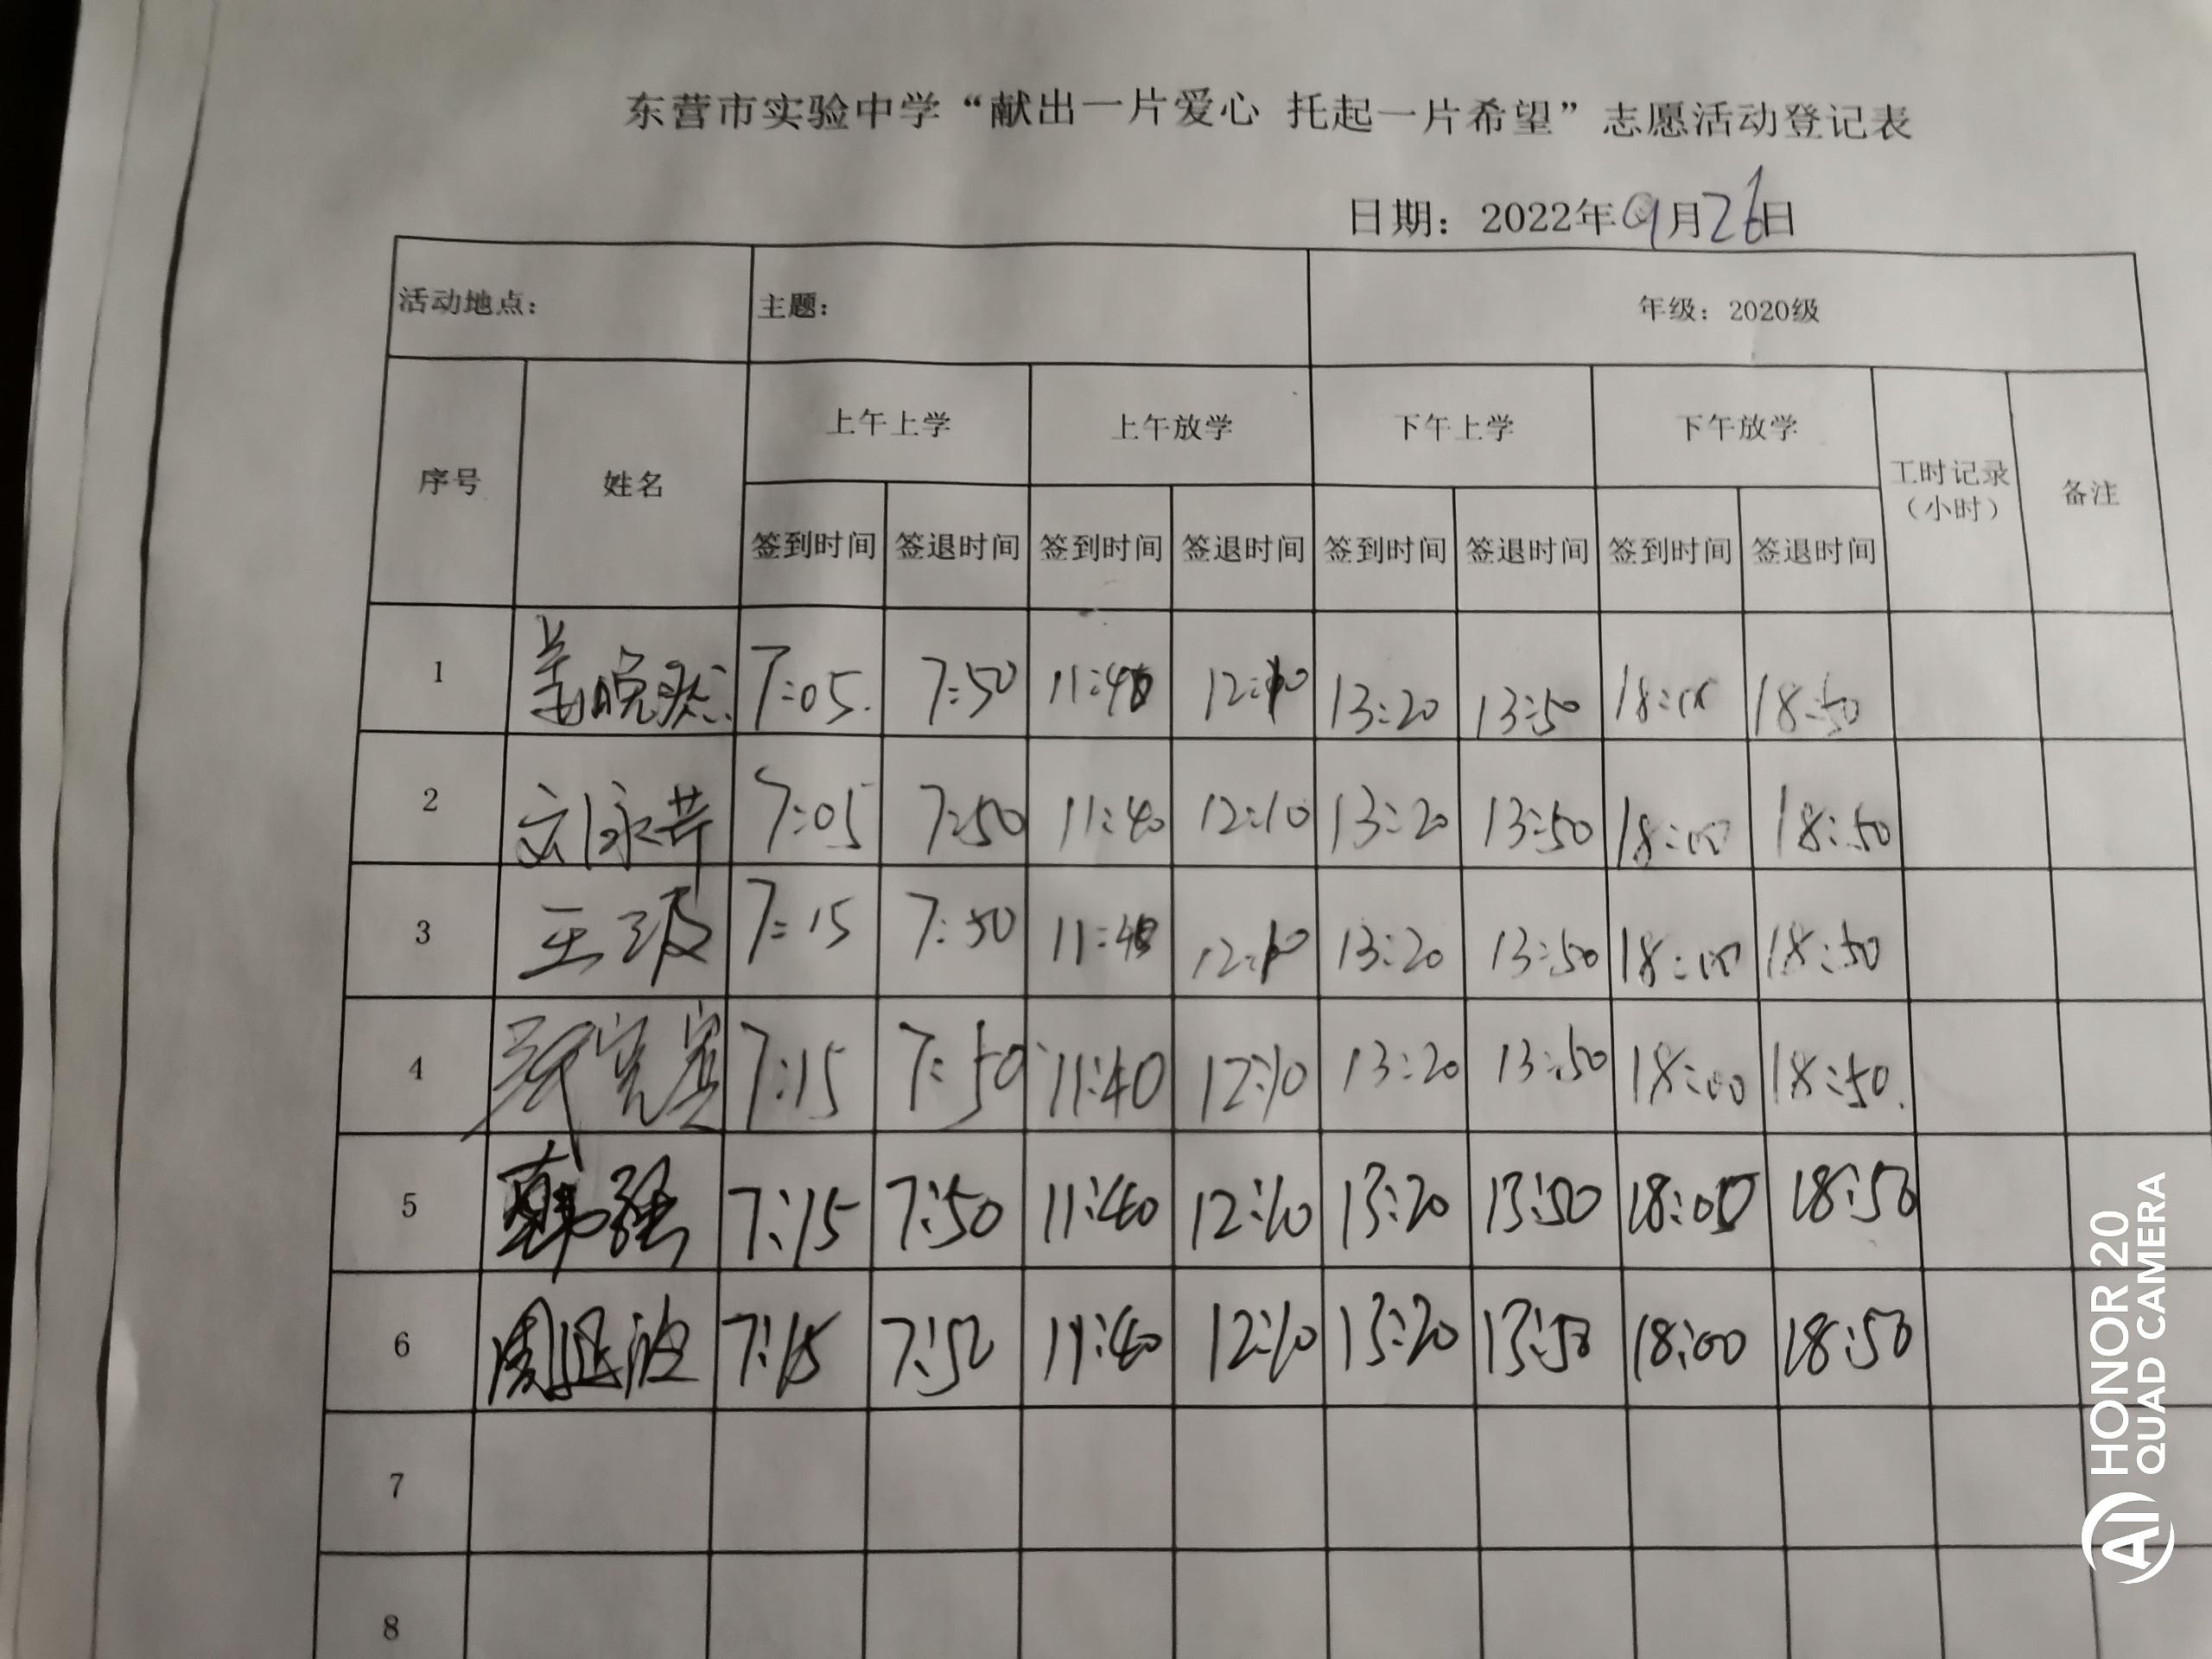 东营市实验中学“献出一片爱心 托起一片希望”志愿活动登记表
日期：2022年09月26日
活动地点： 主题： 年级：2020级
序号 姓名 上午上学 上午放学 下午上学 下午放学 工时记录（小时） 备注
签到时间 签退时间 签到时间 签退时间 签到时间 签退时间 签到时间 签退时间
1 姜晚燃 7:05 7:50 11:40 12:10 13:20 13:50 18:00 18:50
2 刘永芹 7:05 7:50 11:40 12:10 13:20 13:50 18:00 18:50
3 王 7:15 7:50 11:40 12:10 13:20 13:50 18:00 18:50
4 7:15 7:50 11:40 12:10 13:20 13:50 18:00 18:50
5 韩强 7:15 7:50 11:40 12:10 13:20 13:50 18:00 18:50
6 周 波 7:15 7:50 11:40 12:10 13:20 13:50 18:00 18:50
7
8
HONOR 20
QUAD CAMERA
AI